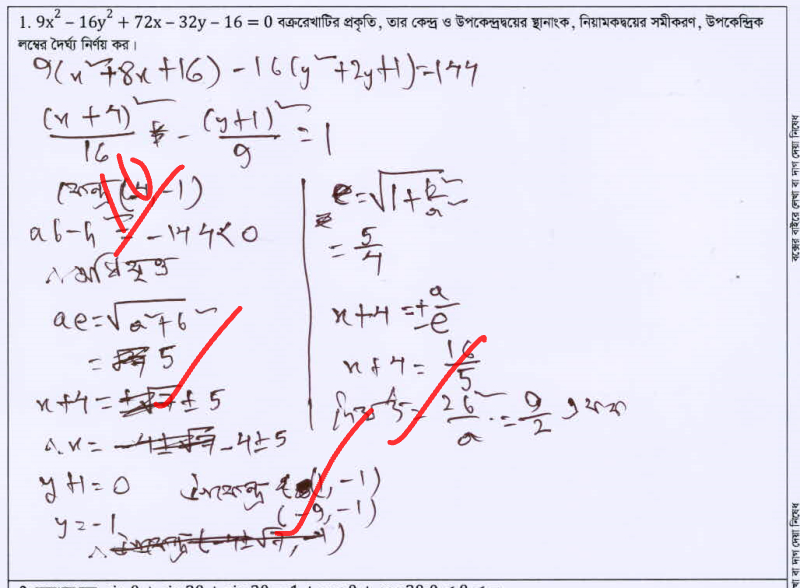 1. 9x² − 16y² + 72x − 32y − 16 = 0 বক্ররেখাটির প্রকৃতি, তার কেন্দ্র ও উপকেন্দ্রদ্বয়ের স্থানাংক, নিয়ামকদ্বয়ের সমীকরণ, উপকেন্দ্রিক
লম্বের দৈর্ঘ্য নির্ণয় কর।
9(x²+8x+16) − 16(y²+2y+1) = 144
(x+4)²/16 − (y+1)²/9 = 1
কেন্দ্র (-4, -1)
ab − h² = −144 < 0
∴ অধিবৃত্ত
ae = √(a²+b²)
= 5
x+4 = ±5
∴ x = −4±5
y+1 = 0
y = −1
উপকেন্দ্র (1, −1)
(−9, −1)
e = √(1 + b²/a²)
= 5/4
x+4 = ± a/e
x+4 = 16/5
= 2b²/a = 9/2 একক
10
বক্সের বাইরে লেখা বা দাগ দেয়া নিষেধ